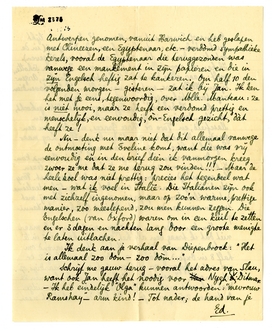 Antwerpen genomen, vanuit Harwich en heb geslapen
met Chineesen, een Egyptenaar, etc. – verdomd sympathieke
kerels, vooral de Egyptenaar die teruggezonden was
vanwege een mankement in zijn papieren en die in
zijn Engelsch heftig zat te kankeren. Om half 10 den
volgenden morgen – gisteren – zat ik bij Jan. Ik ben
het met je eens, tegenwoordig, over Adèle: ze
is niet mooi, maar ze heeft een verdomd prettig en
menschelijk, en eenvoudig, on-Engelsch gezicht, dat
heeft ze!
Nu – denk nu maar niet dat dit allemaal vanwege
de ontmoeting met Eveline komt, want die was vrij
eenvoudig en in den brief dien ik vanmorgen kreeg
zwoer ze me dat ze me terug zou vinden!!! – Maar de
heele kool was wat prettig: precies het tegendeel van
– wat ik voel in Italië. Die Italianen zijn ook
met zichzelf ingenomen, maar op zoo'n warme, prettige
manier, zoo meesleepend, zou men kunnen zeggen. Die
Engelschen (van Oxford) waren om in een kist te zetten
en er 5 dagen en nachten lang door een groote menigte
te laten uitlachen.
Ik denk aan je verhaal van Diepenbrock: "Het
is allemaal zoo dom – zoo dom..."
Schrijf me gauw terug – vooral het adres van Slau,
want ook Jan heeft het noodig voor Nijgh & Ditmar.
– Ik heb eindelijk "Olga" kunnen antwoorden, mevrouw
– arm kind! – Tot nader, de hand van je
Ed.